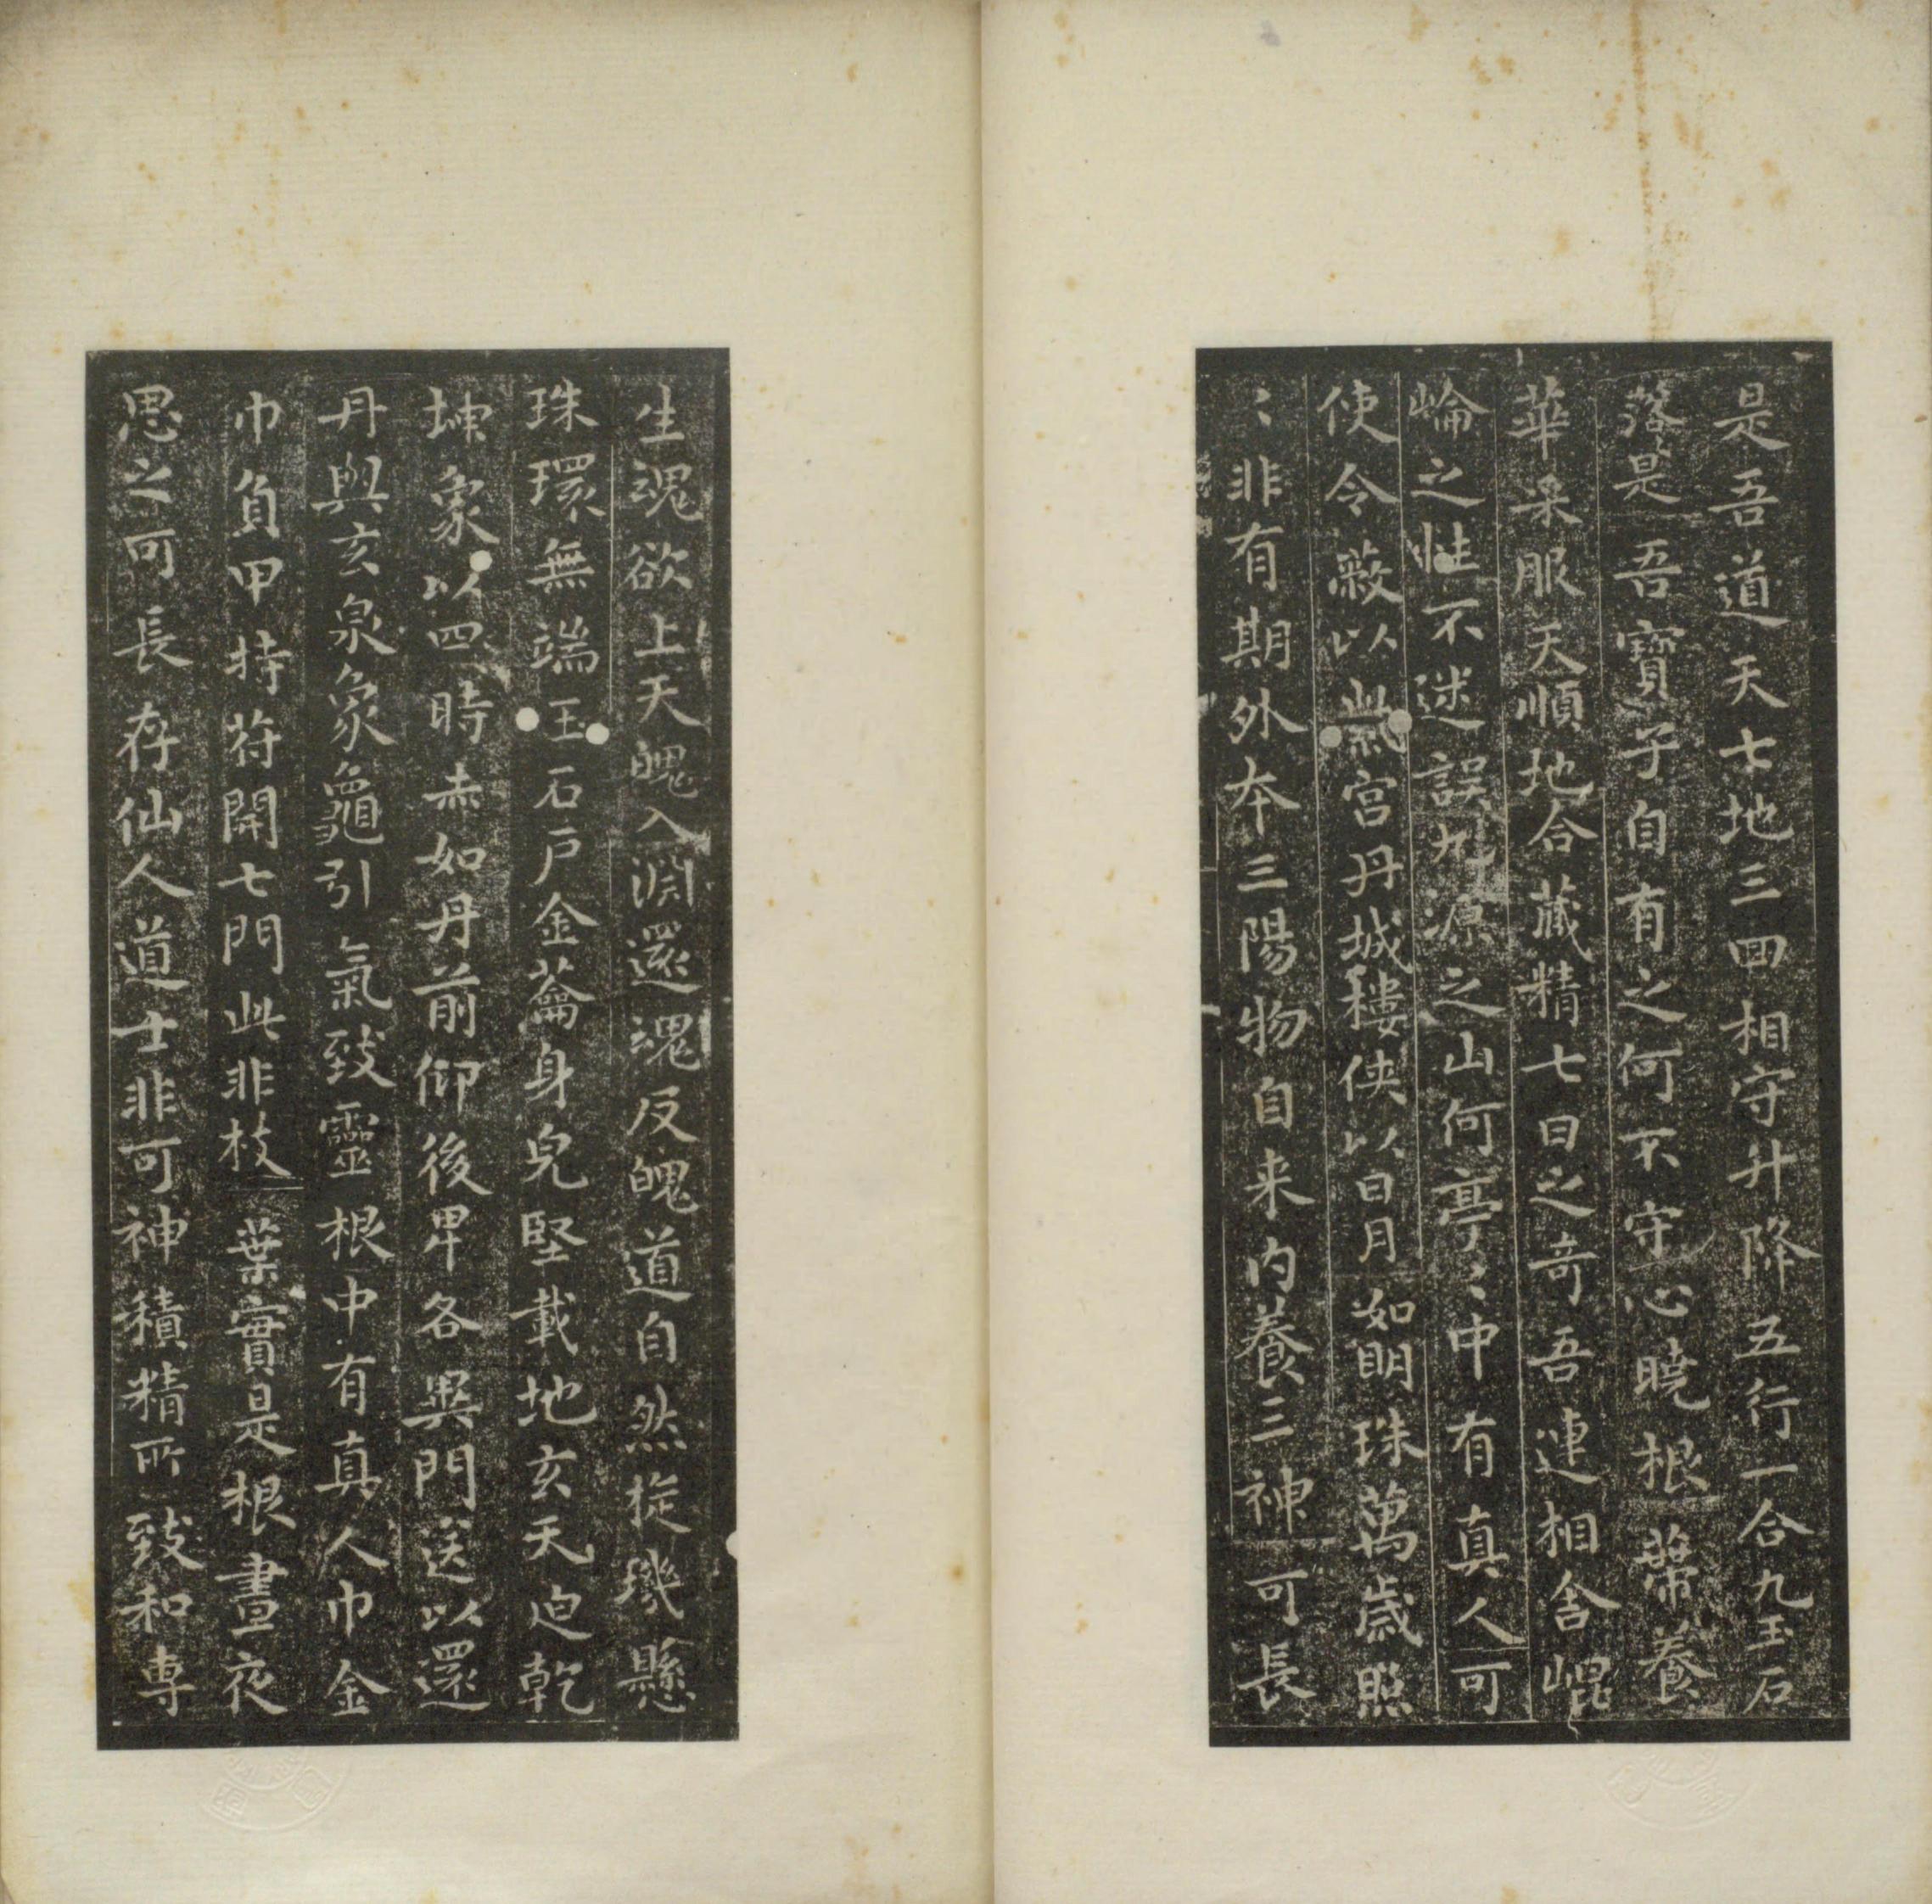 是吾道天七地三回相守升降五行一合九玉石
落〻是吾寶子自有之何不守心曉根蒂養
華采服天順地合藏精七日之奇吾連相舍崐
崘之性不迷誤九源之山何亭〻中有真人可
使令蔽以紫宫丹城樓俠以日月如明珠萬歲照
〻非有期外本三陽物自来内養三神可長
生魂欲上天魄入淵還魂反魄道自然旋璣懸
珠環無端玉石戶金籥身兒堅載地玄天迫乾
坤象以四時赤如丹前仰後卑各異門送以還
丹與玄泉象龜引氣致靈根中有真人巾金
巾負甲持苻開七門此非枝葉實是根晝夜
思之可長存仙人道士非可神積精所致和専